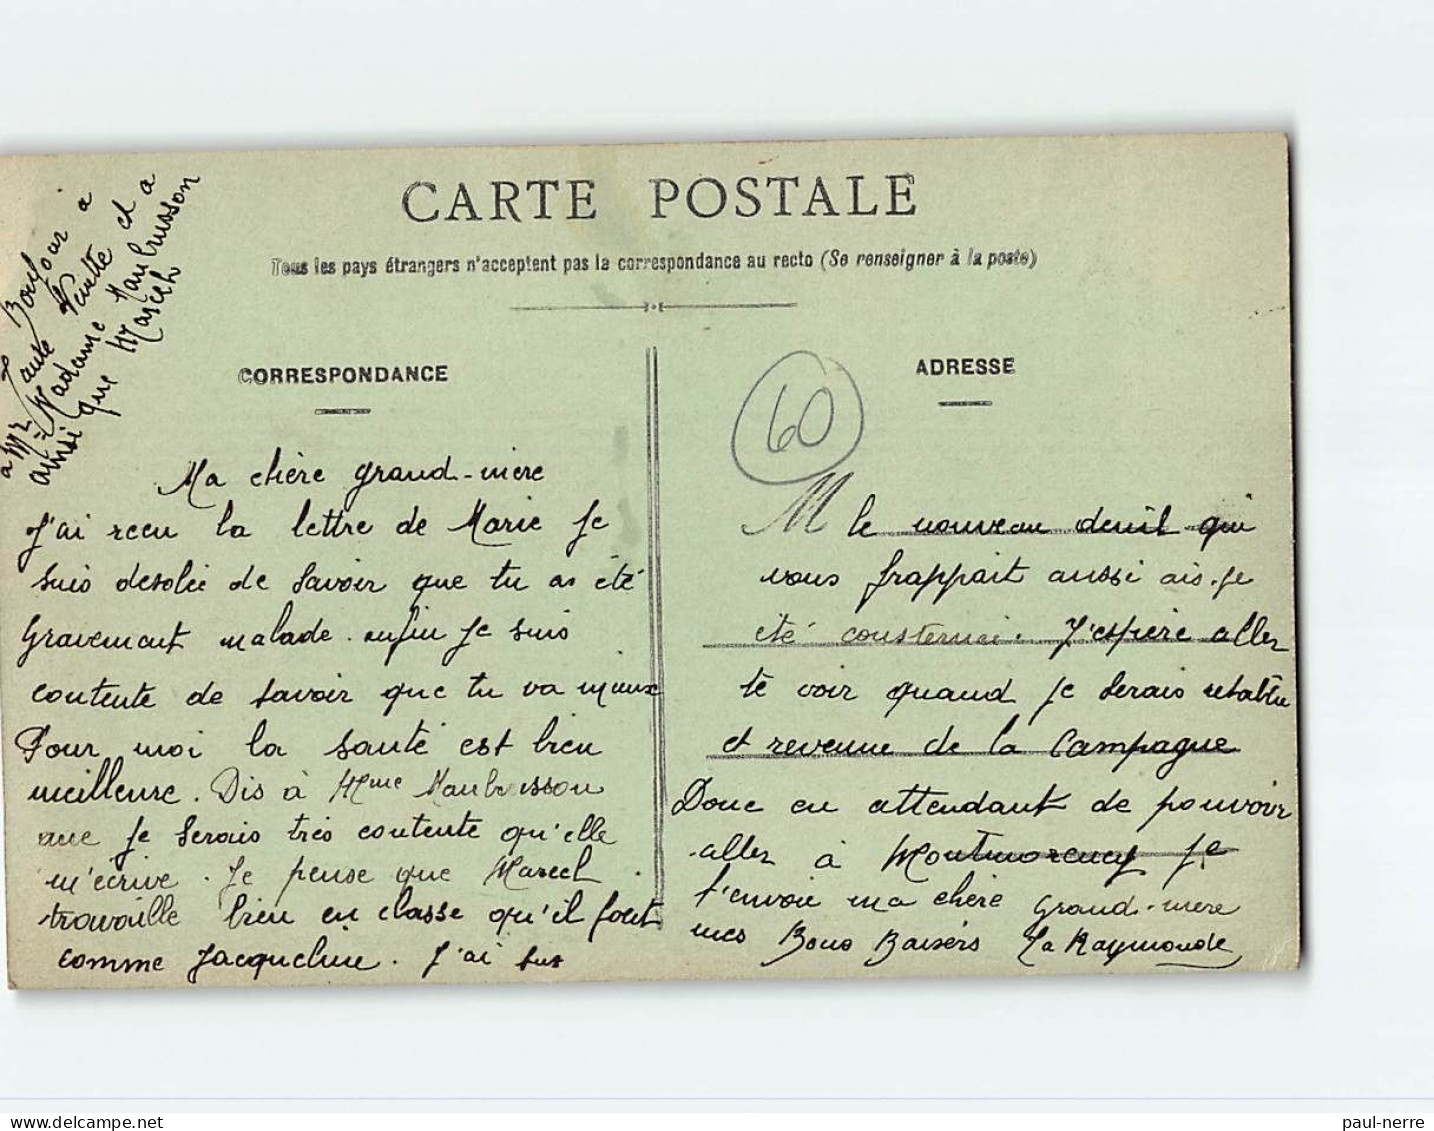 CARTE POSTALE
Tous les pays étrangers n'acceptent pas la correspondance au recto (Se renseigner à la poste)
CORRESPONDANCE
ADRESSE
60
Bonjour à
Tante et a
à Mr Madame Maubuisson
ainsi que Marcel
Ma chère grand-mère
J'ai recu la lettre de Marie Je
suis desolée de savoir que tu as été
gravement malade. enfin Je suis
contente de savoir que tu va mieux
Pour moi la santé est bien
meilleure. Dis à Mme Maubuisson
que Je serais très contente qu'elle
m'écrive. Je pense que Marcel
travaille bien en classe qu'il fout
comme Jacqueline. J'ai sus
M le nouveau deuil qui
vous frappait aussi ais-je
été consternai. J'espère aller
te voir quand Je serais retablie
et revenue de la Campagne
Donc en attendant de pouvoir
aller à Montmorency Je
t'envoie ma chère grand-mere
mes Bons Baisers Ta Raymonde
paul-nerre